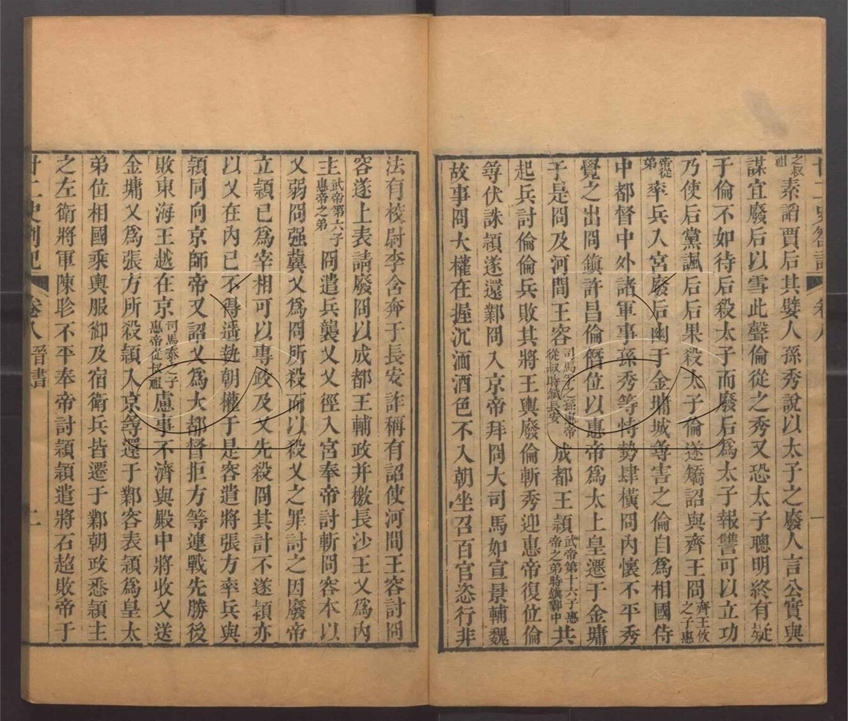 廿二史劄記 卷八 一
之叔祖素諂賈后其嬖人孫秀說以太子之廢人言公實與
謀宜廢后以雪此聲倫從之秀又恐太子聰明終有疑
于倫不如待后殺太子而廢后爲太子報讐可以立功
乃使后黨諷后后果殺太子倫遂矯詔與齊王冏齊王攸之子惠
帝從弟率兵入宮廢后幽于金墉城等害之倫自爲相國侍
中都督中外諸軍事孫秀等恃勢肆橫冏內懷不平秀
覺之出冏鎮許昌倫僭位以惠帝爲太上皇遷于金墉
于是冏及河間王容司馬孚之孫惠帝從叔時鎮長安成都王穎武帝第十六子惠帝之弟時鎮鄴中共
起兵討倫倫兵敗其將王輿廢倫斬秀迎惠帝復位倫
等伏誅穎遂還鄴冏入京帝拜冏大司馬如宣景輔魏
故事冏大權在握沉湎酒色不入朝坐召百官恣行非
法有校尉李含奔于長安詐稱有詔使河間王容討冏
容遂上表請廢冏以成都王輔政并檄長沙王乂爲內
主武帝第六子惠帝之弟冏遣兵襲乂乂徑入宮奉帝討斬冏容本以
乂弱冏强冀乂爲冏所殺而以殺乂之罪討之因廢帝
立穎已爲宰相可以專政及乂先殺冏其計不遂穎亦
以乂在內己不得遙執朝權于是容遣將張方率兵與
穎同向京師帝又詔乂爲大都督拒方等連戰先勝後
敗東海王越在京司馬泰之子惠帝從叔祖慮事不濟與殿中將收乂送
金墉乂爲張方所殺穎入京等還于鄴容表穎爲皇太
弟位相國乘輿服御及宿衛兵皆遷于鄴朝政悉穎主
之左衛將軍陳眕不平奉帝討穎穎遣將石超敗帝于
廿二史劄記 卷八 晉書 二